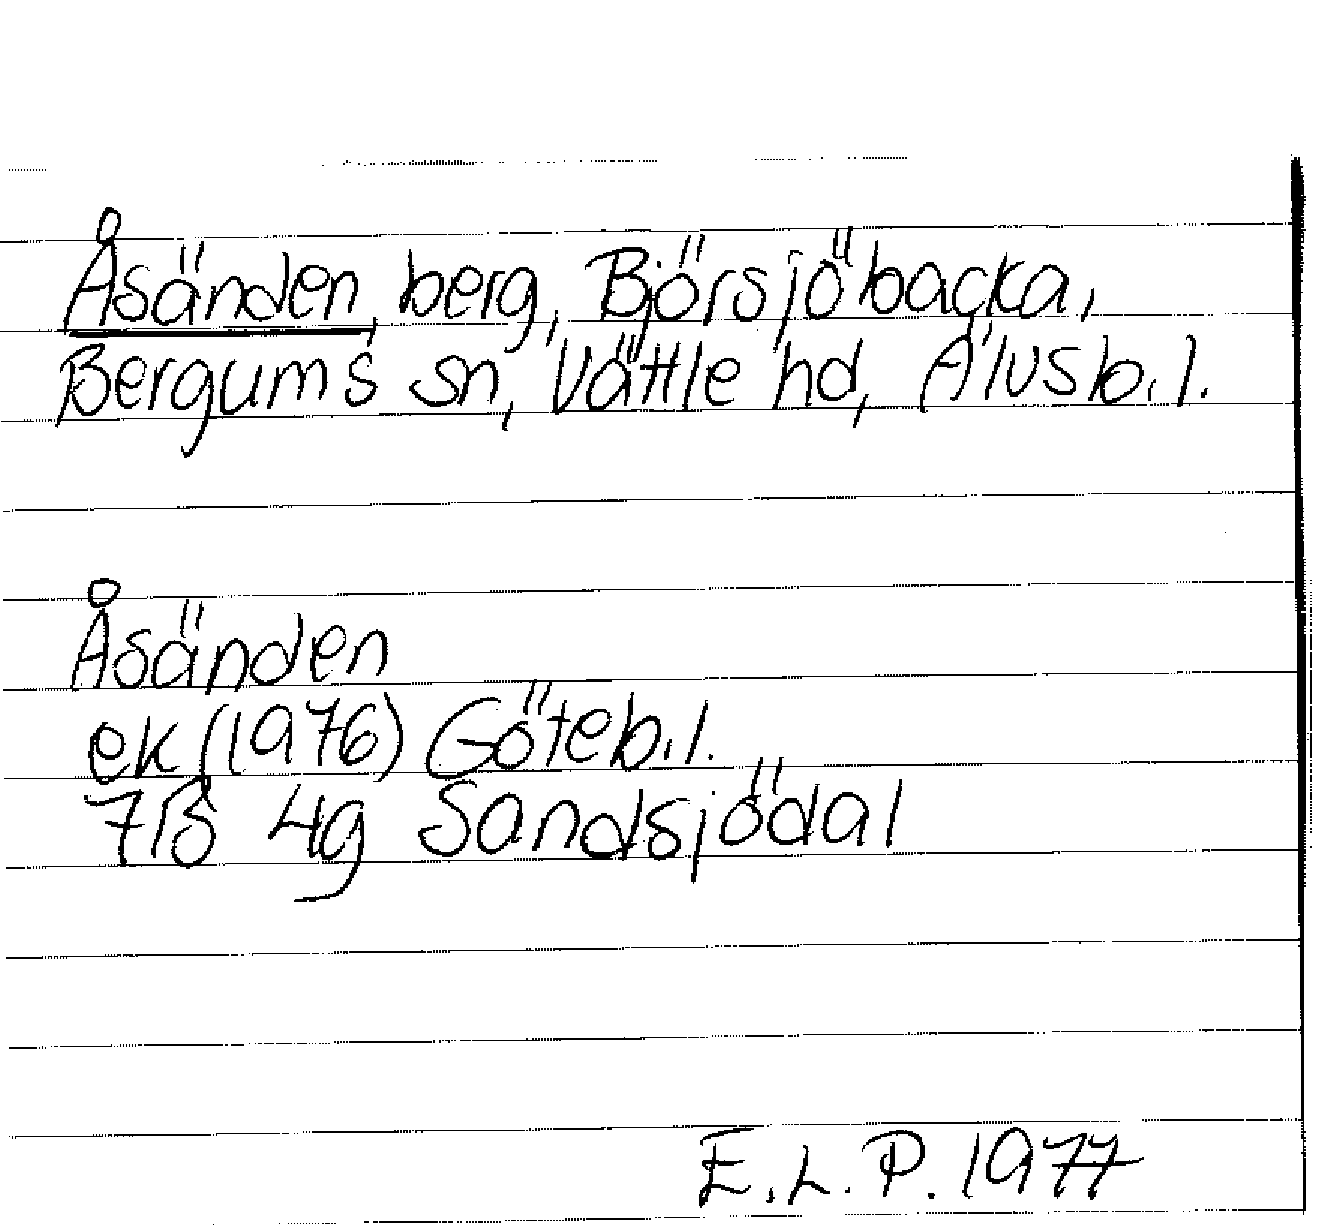 Åsänden, berg, Björsjöbacka,
Bergums sn, Vättle hd, Älvsb.l.
Åsänden
ek (1976) Göteb.l.
7B 4g Sandsjödal
E.L.P. 1977